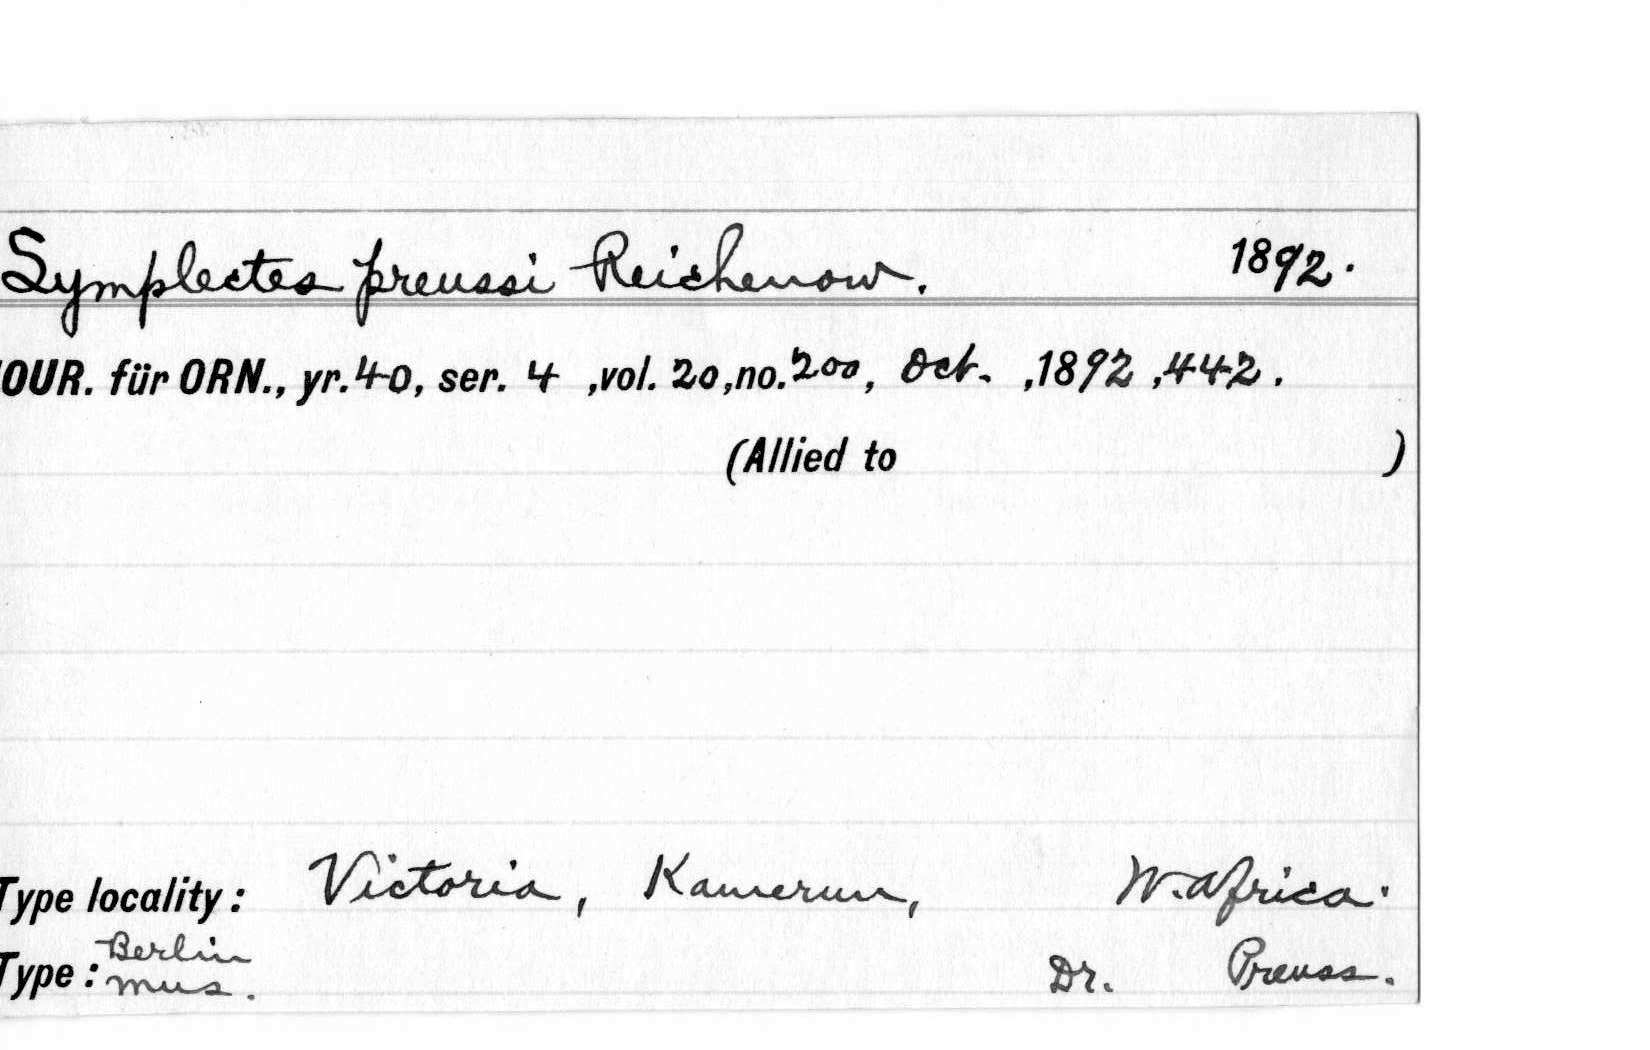 Symplectes preussi Reichenow. 1892.
OUR. für ORN., yr.40, ser. 4 ,vol. 20,no.200, Oct. ,1892 ,442.
(Allied to )
Type locality: Victoria, Kamerun, W. Africa.
Berlin
Type: Mus. Dr. Preuss.